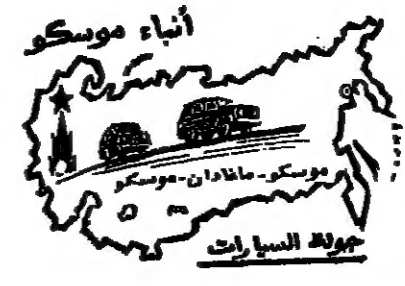 أنباء موسكو
موسكو-ماغادان-موسكو
جولة السيارات